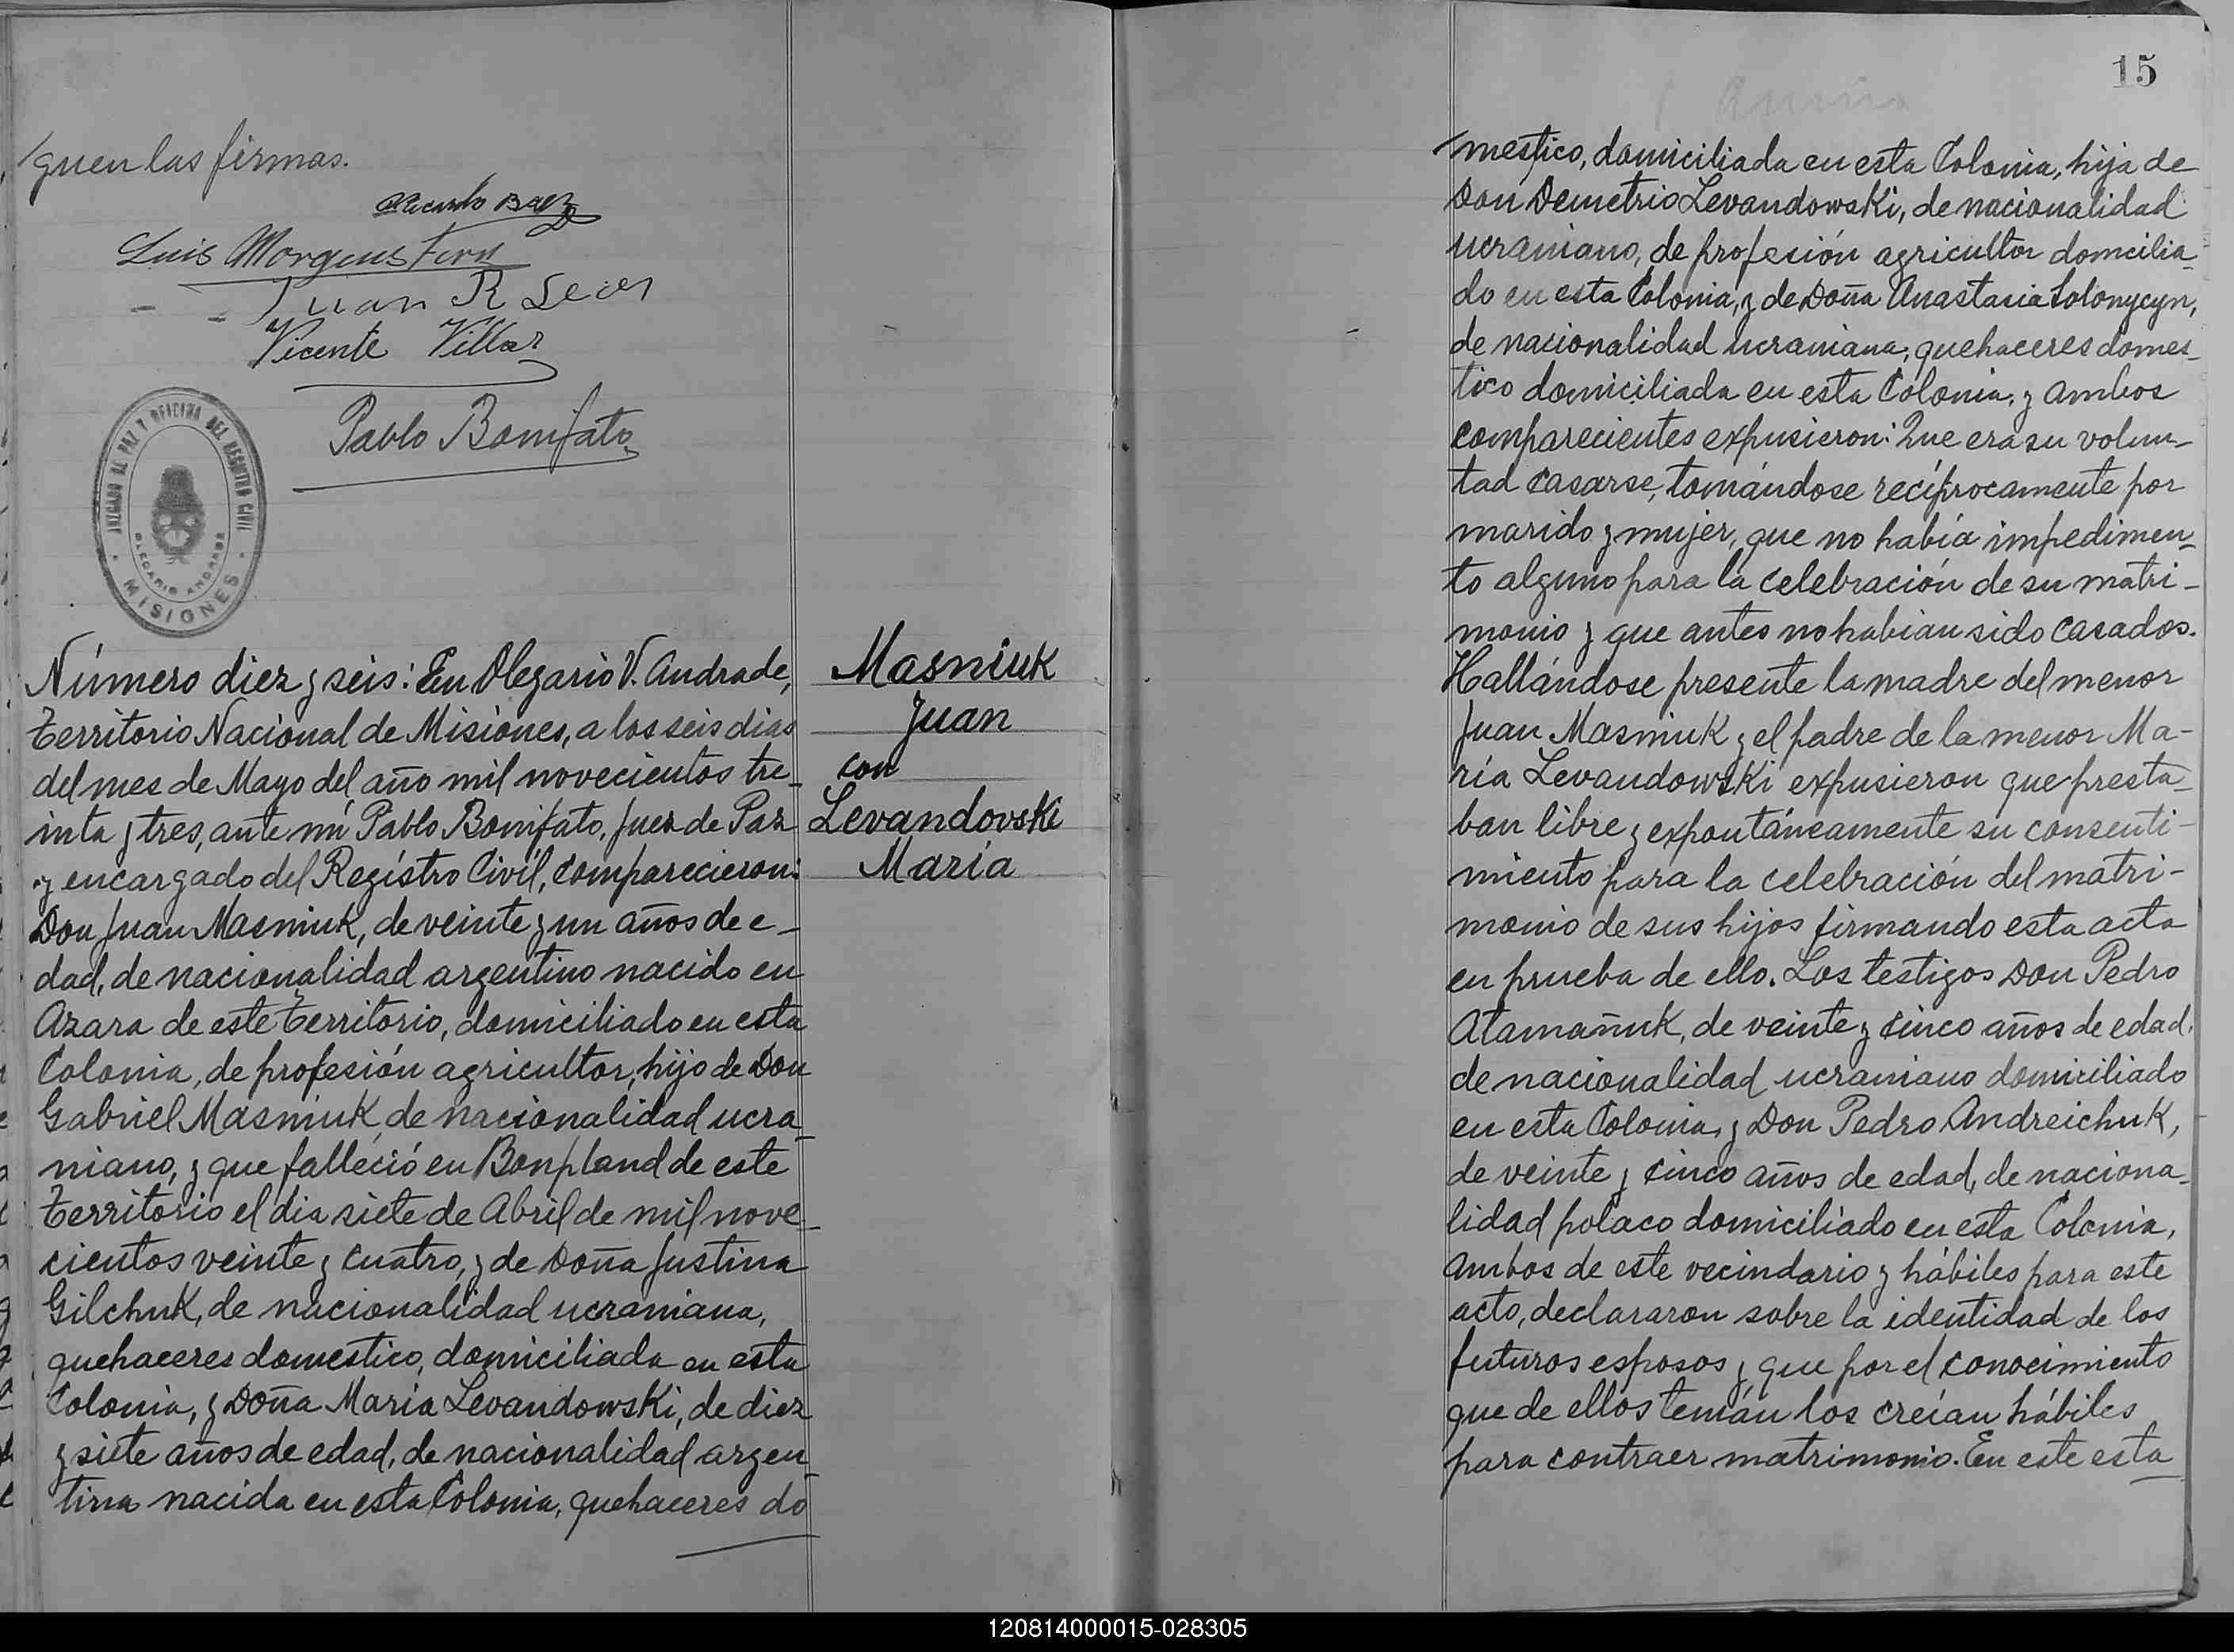 /guen las firmas.
Ricardo Baez
Luis Morgenstern
Juan R
Vicente Villar
Pablo Bonifato
JUZGADO DE PAZ Y OFICINA DEL REGISTRO CIVIL
OLEGARIO ANDRADE
· MISIONES ·
Número diez y seis: En Olegario V. Andrade,
Territorio Nacional de Misiones, a los seis dias
del mes de Mayo del año mil novecientos tre_
inta y tres, ante mí Pablo Bonifato, Juez de Paz
y encargado del Registro Civil, comparecieron:
Don Juan Masniuk, de veinte y un años de e_
dad, de nacionalidad argentino nacido en
Azara de este Territorio, domiciliado en esta
Colonia, de profesión agricultor, hijo de Don
Gabriel Masniuk, de nacionalidad ucra_
niano, y que falleció en Bonpland de este
Territorio el dia siete de Abril de mil nove_
cientos veinte y cuatro, y de Doña Justina
Gilchuk, de nacionalidad ucraniana,
quehaceres domestico, domiciliada en esta
Colonia, y Doña Maria Levandowski, de diez
y siete años de edad, de nacionalidad argen_
tina nacida en esta Colonia, quehaceres do
Masniuk
Juan
con
Levandovski
María
15
/mestico, domiciliada en esta Colonia, hija de
Don Demetrio Levandowski, de nacionalidad
ucraniano, de profesión agricultor domicilia_
do en esta Colonia, y de Doña Anastasia Solonycyn,
de nacionalidad ucraniana, quehaceres domes_
tico domiciliada en esta Colonia, y ambos
comparecientes expusieron: Que era su volun_
tad casarse, tomándose recíprocamente por
marido y mujer, que no había impedimen_
to alguno para la celebración de su matri_
monio y que antes no habian sido casados.
Hallándose presente la madre del menor
Juan Masniuk y el padre de la menor Ma-
ría Levandowski expusieron que presta_
ban libre y expontáneamente su consenti-
miento para la celebración del matri-
monio de sus hijos firmando esta acta
en prueba de ello. Los testigos Don Pedro
Atamañuk, de veinte y cinco años de edad,
de nacionalidad ucraniano domiciliado
en esta Colonia, y Don Pedro Andreichuk,
de veinte y cinco años de edad, de naciona_
lidad polaco domiciliado en esta Colonia,
ambos de este vecindario y hábiles para este
acto, declararon sobre la identidad de los
futuros esposos y que por el conocimiento
que de ellos tenían los creían hábiles
para contraer matrimonio. En este esta
120814000015-028305